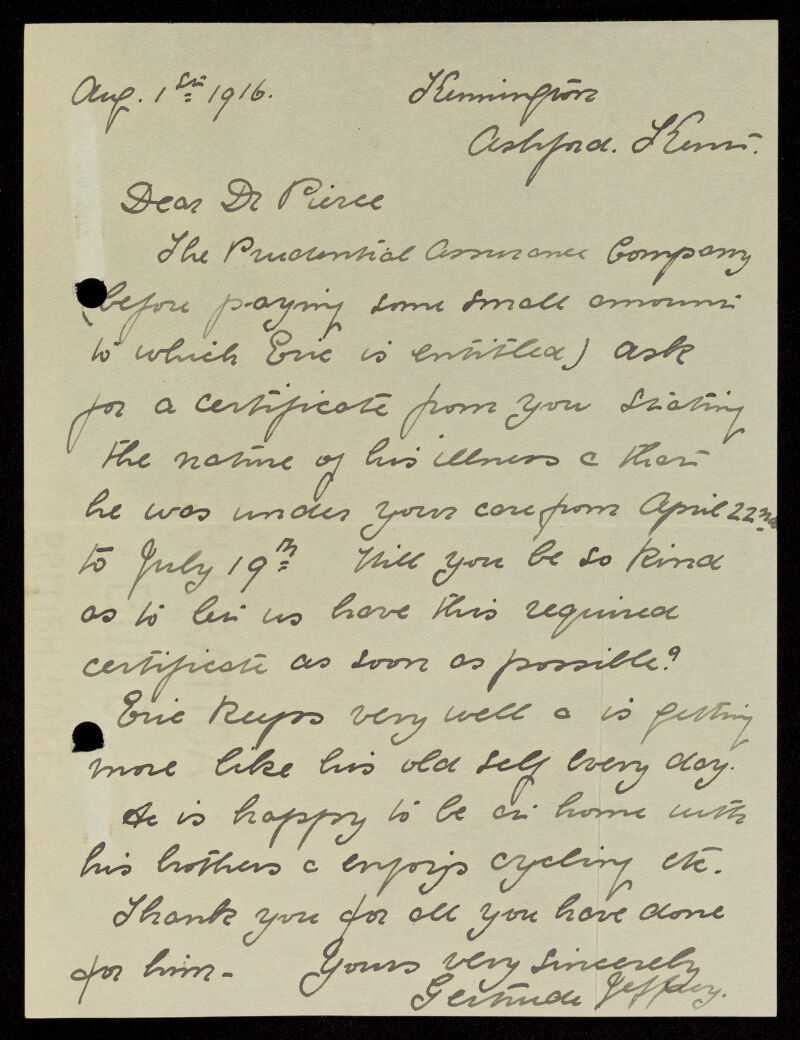 Aug. 1st 1916. Kennington
Ashford. Kent.
Dear Dr Pierce
The Prudential Assurance Company
(before paying some small amount
to which Eric is entitled) ask
for a certificate from you stating
the nature of his illness & that
he was under your care from April 22nd
to July 19th Will you be so kind
as to let us have this required
certificate as soon as possible?
Eric keeps very well & is getting
more like his old self every day.
He is happy to be at home with
his brothers & enjoys cycling etc.
Thank you for all you have done
for him - Yours very sincerely
Gertrude Jeffery.